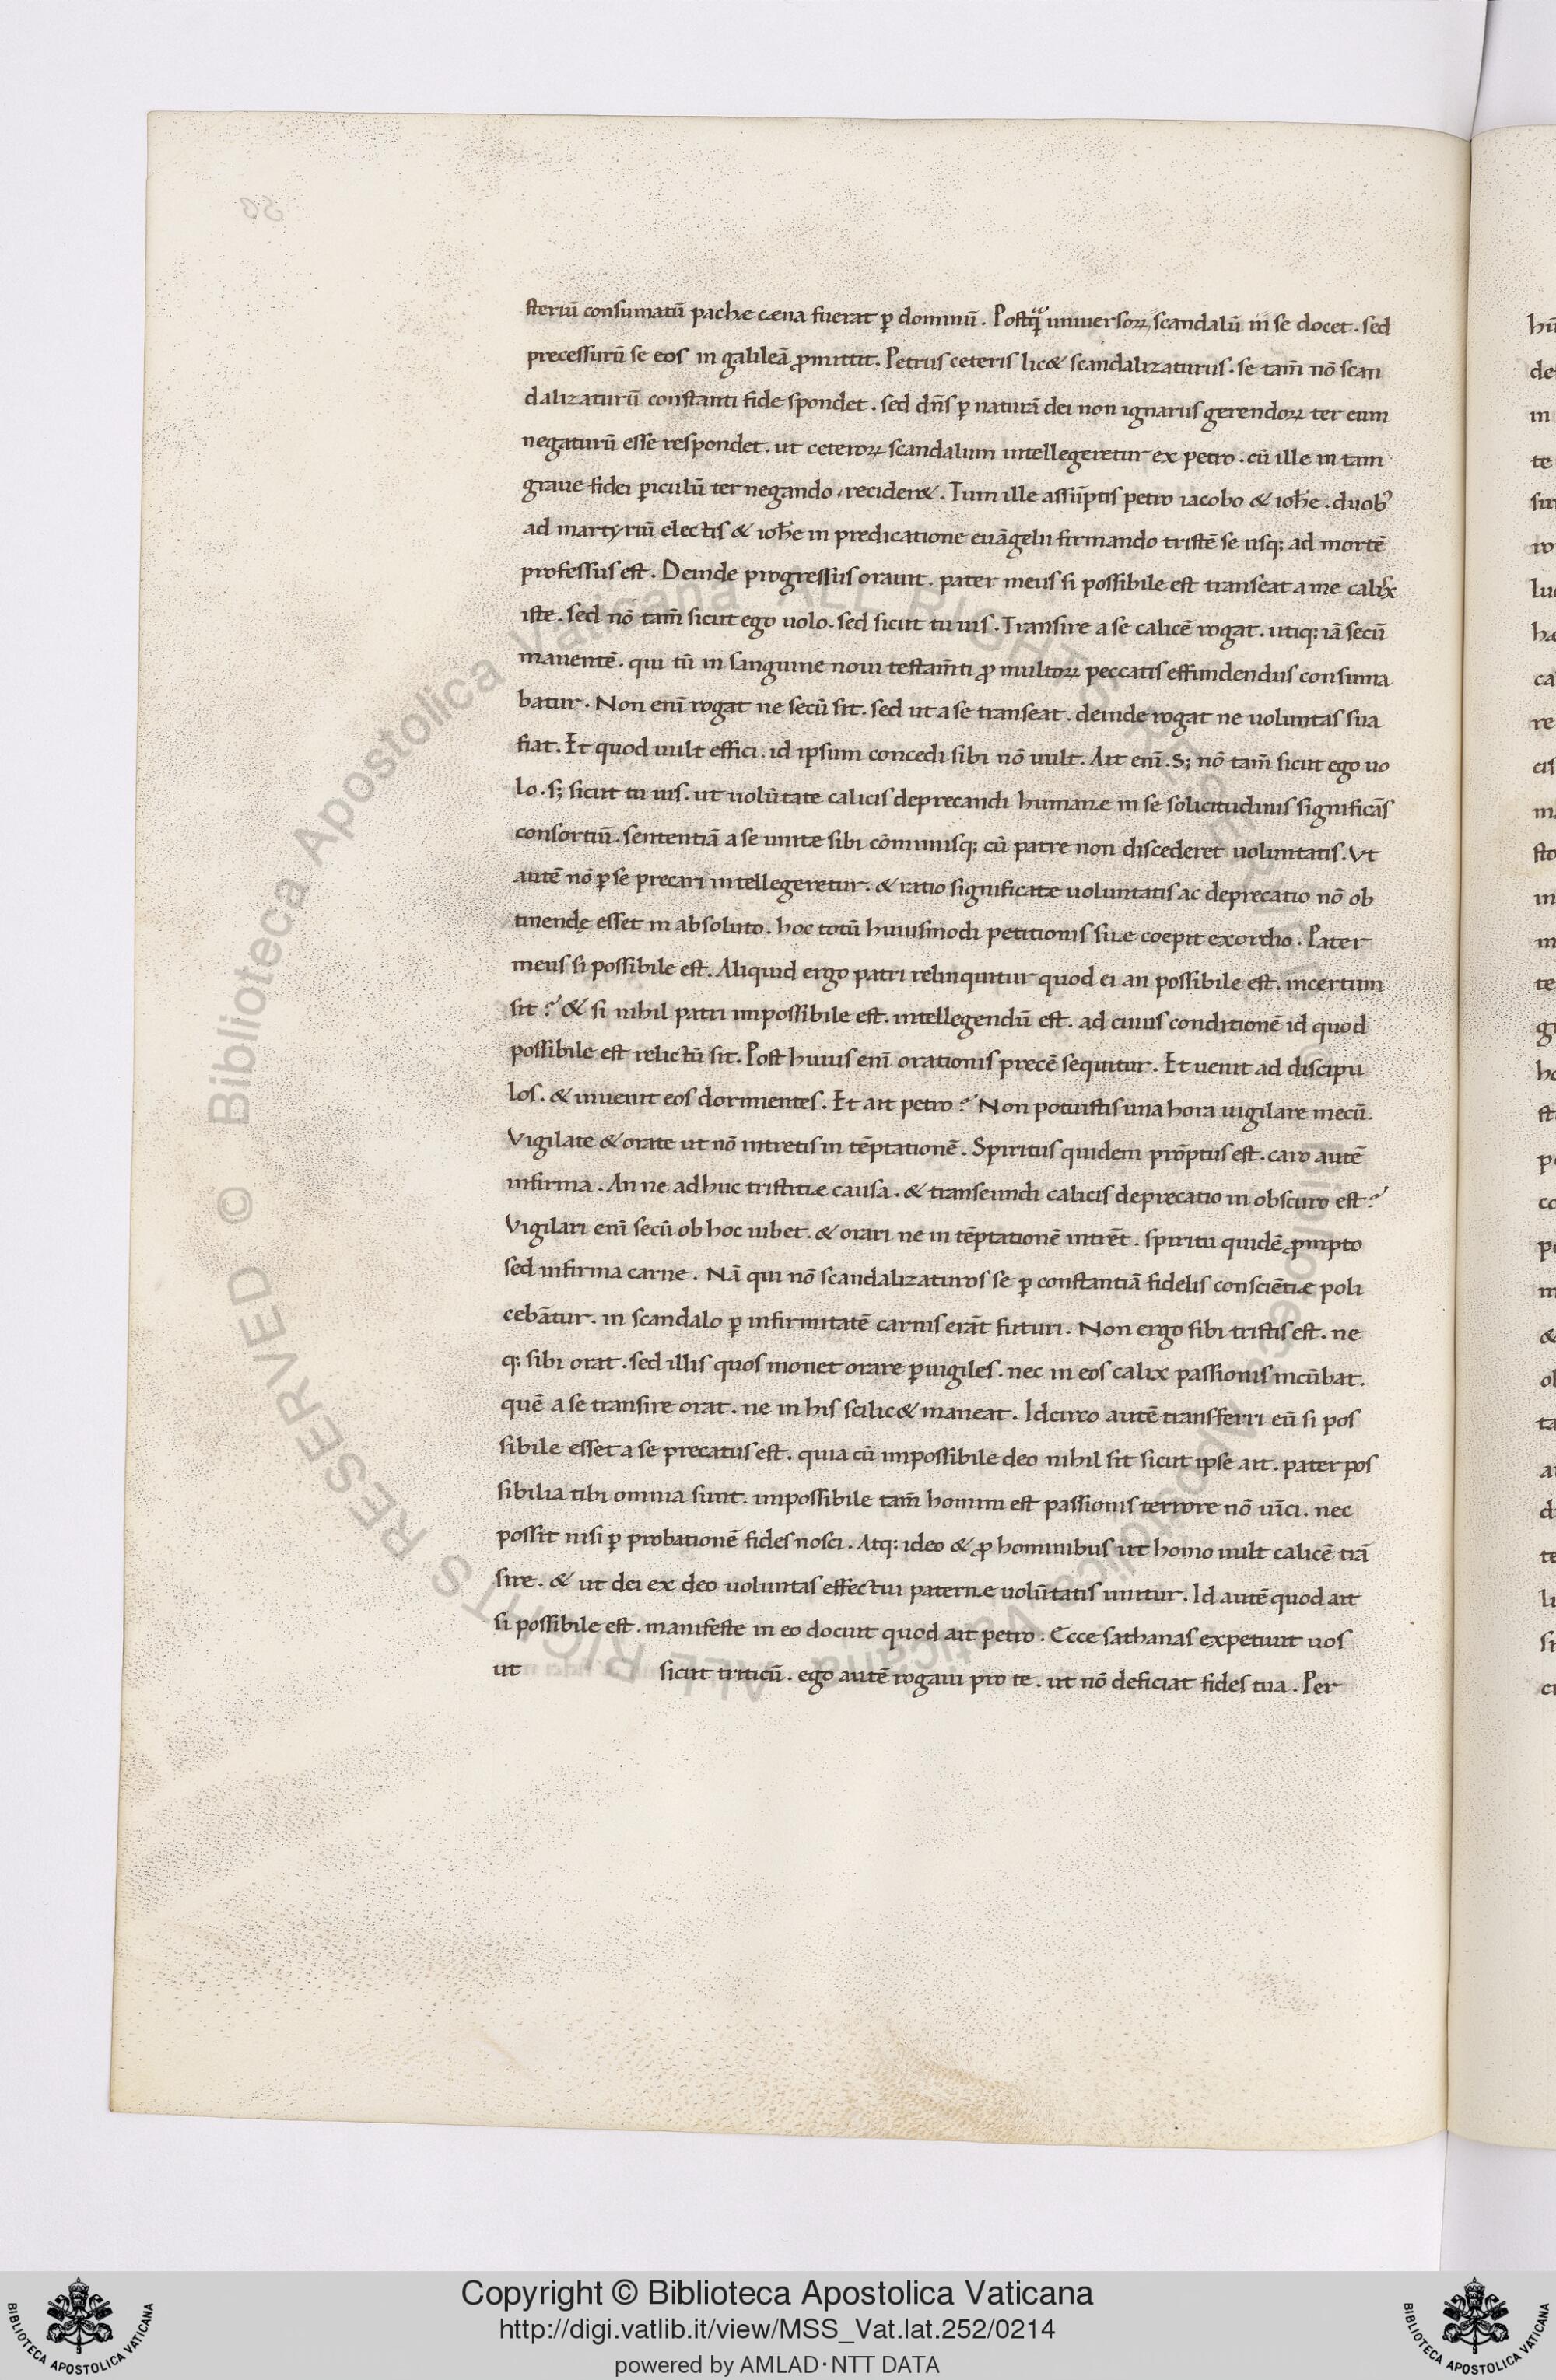 steriū consumatū pachae caena fuerat ꝑ dominū. Postq̃ uniuersoꝝ scandalū in se docet. sed
precessurū se eos in galileā ꝓmittit. Petrus ceteris lic& scandalizaturis. se tam̄ nō scan
dalizaturū constanti fide spondet. sed dn̄s ꝑ naturā dei non ignarus gerendoꝝ ter eum
negaturū esse respondet. ut ceteroꝝ scandalum intellegeretur ex petro. cū ille in tam
graue fidei ꝑiculū ter negando recider&. Tum ille assūptis petro iacobo & ioh̄e. duobꝰ
ad martyriū electis & ioh̄e in predicatione euāgelii firmando tristē se usq; ad mortē
professus est. Deinde progressus orauit. pater meus si possibile est transeat a me calix
iste. sed nō tam̄ sicut ego uolo. sed sicut tu uis. Transire a se calicē rogat. utiq; iā secū
manentē. qui tū in sanguine noui testam̄ti ꝓ multoꝝ peccatis effundendus consuma
batur. Non enī rogat ne secū sit. sed ut a se transeat. deinde rogat ne uoluntas sua
fiat. Et quod uult effici. id ipsum concedi sibi nō uult. Ait enī. S; nō tam̄ sicut ego uo
lo. s; sicut tu uis. ut uolūtate calicis deprecandi humanae in se solicitudinis significās
consortiū. sententiā a se unitae sibi cōmunisq; cū patre non discederet uoluntatis. Vt
autē nō ꝑ se precari intellegeretur. & ratio significatae uoluntatis ac deprecatio nō ob
tinendę esset in absoluto. hoc totū huiusmodi petitionis suae coepit exordio. Pater
meus si possibile est. Aliquid ergo patri relinquitur quod ei an possibile est. incertum
sit? & si nihil patri impossibile est. intellegendū est. ad cuius conditionē id quod
possibile est relictū sit. Post huius enī orationis precē sequitur. Et uenit ad discipu
los. & inuenit eos dormientes. Et ait petro? Non potuistis una hora uigilare mecū.
Vigilate & orate ut nō intretis in tēptationē. Spiritus quidem prōptus est. caro autē
infirma. An ne adhuc tristitiae causa. & transeundi calicis deprecatio in obscuro est?
Vigilari enī secū ob hoc iubet. & orari ne in tēptationē intrēt. spiritu quidē ꝓmpto
sed infirma carne. Nā qui nō scandalizaturos se ꝑ constantiā fidelis consciētiae poli
cebātur. in scandalo ꝑ infirmitatē carnis erāt futuri. Non ergo sibi tristis est. ne
q; sibi orat. sed illis quos monet orare ꝑuigiles. nec in eos calix passionis incūbat.
quē a se transire orat. ne in his scilic& maneat. Idcirco autē transferri eū si pos
sibile esset a se precatus est. quia cū impossibile deo nihil sit sicut ipse ait. pater pos
sibilia tibi omnia sunt. impossibile tam̄ homini est passionis terrore nō uīci. nec
possit nisi ꝑ probationē fides nosci. Atq; ideo & ꝓ hominibus ut homo uult calicē trā
sire. & ut dei ex deo uoluntas effectui paternae uolūtatis unitur. Id autē quod ait
si possibile est. manifeste in eo docuit quod ait petro. Ecce sathanas expetiuit uos
ut sicut triticū. ego autē rogaui pro te. ut nō deficiat fides tua. Per
Copyright © Biblioteca Apostolica Vaticana
http://digi.vatlib.it/view/MSS_Vat.lat.252/0214
powered by AMLAD·NTT DATA